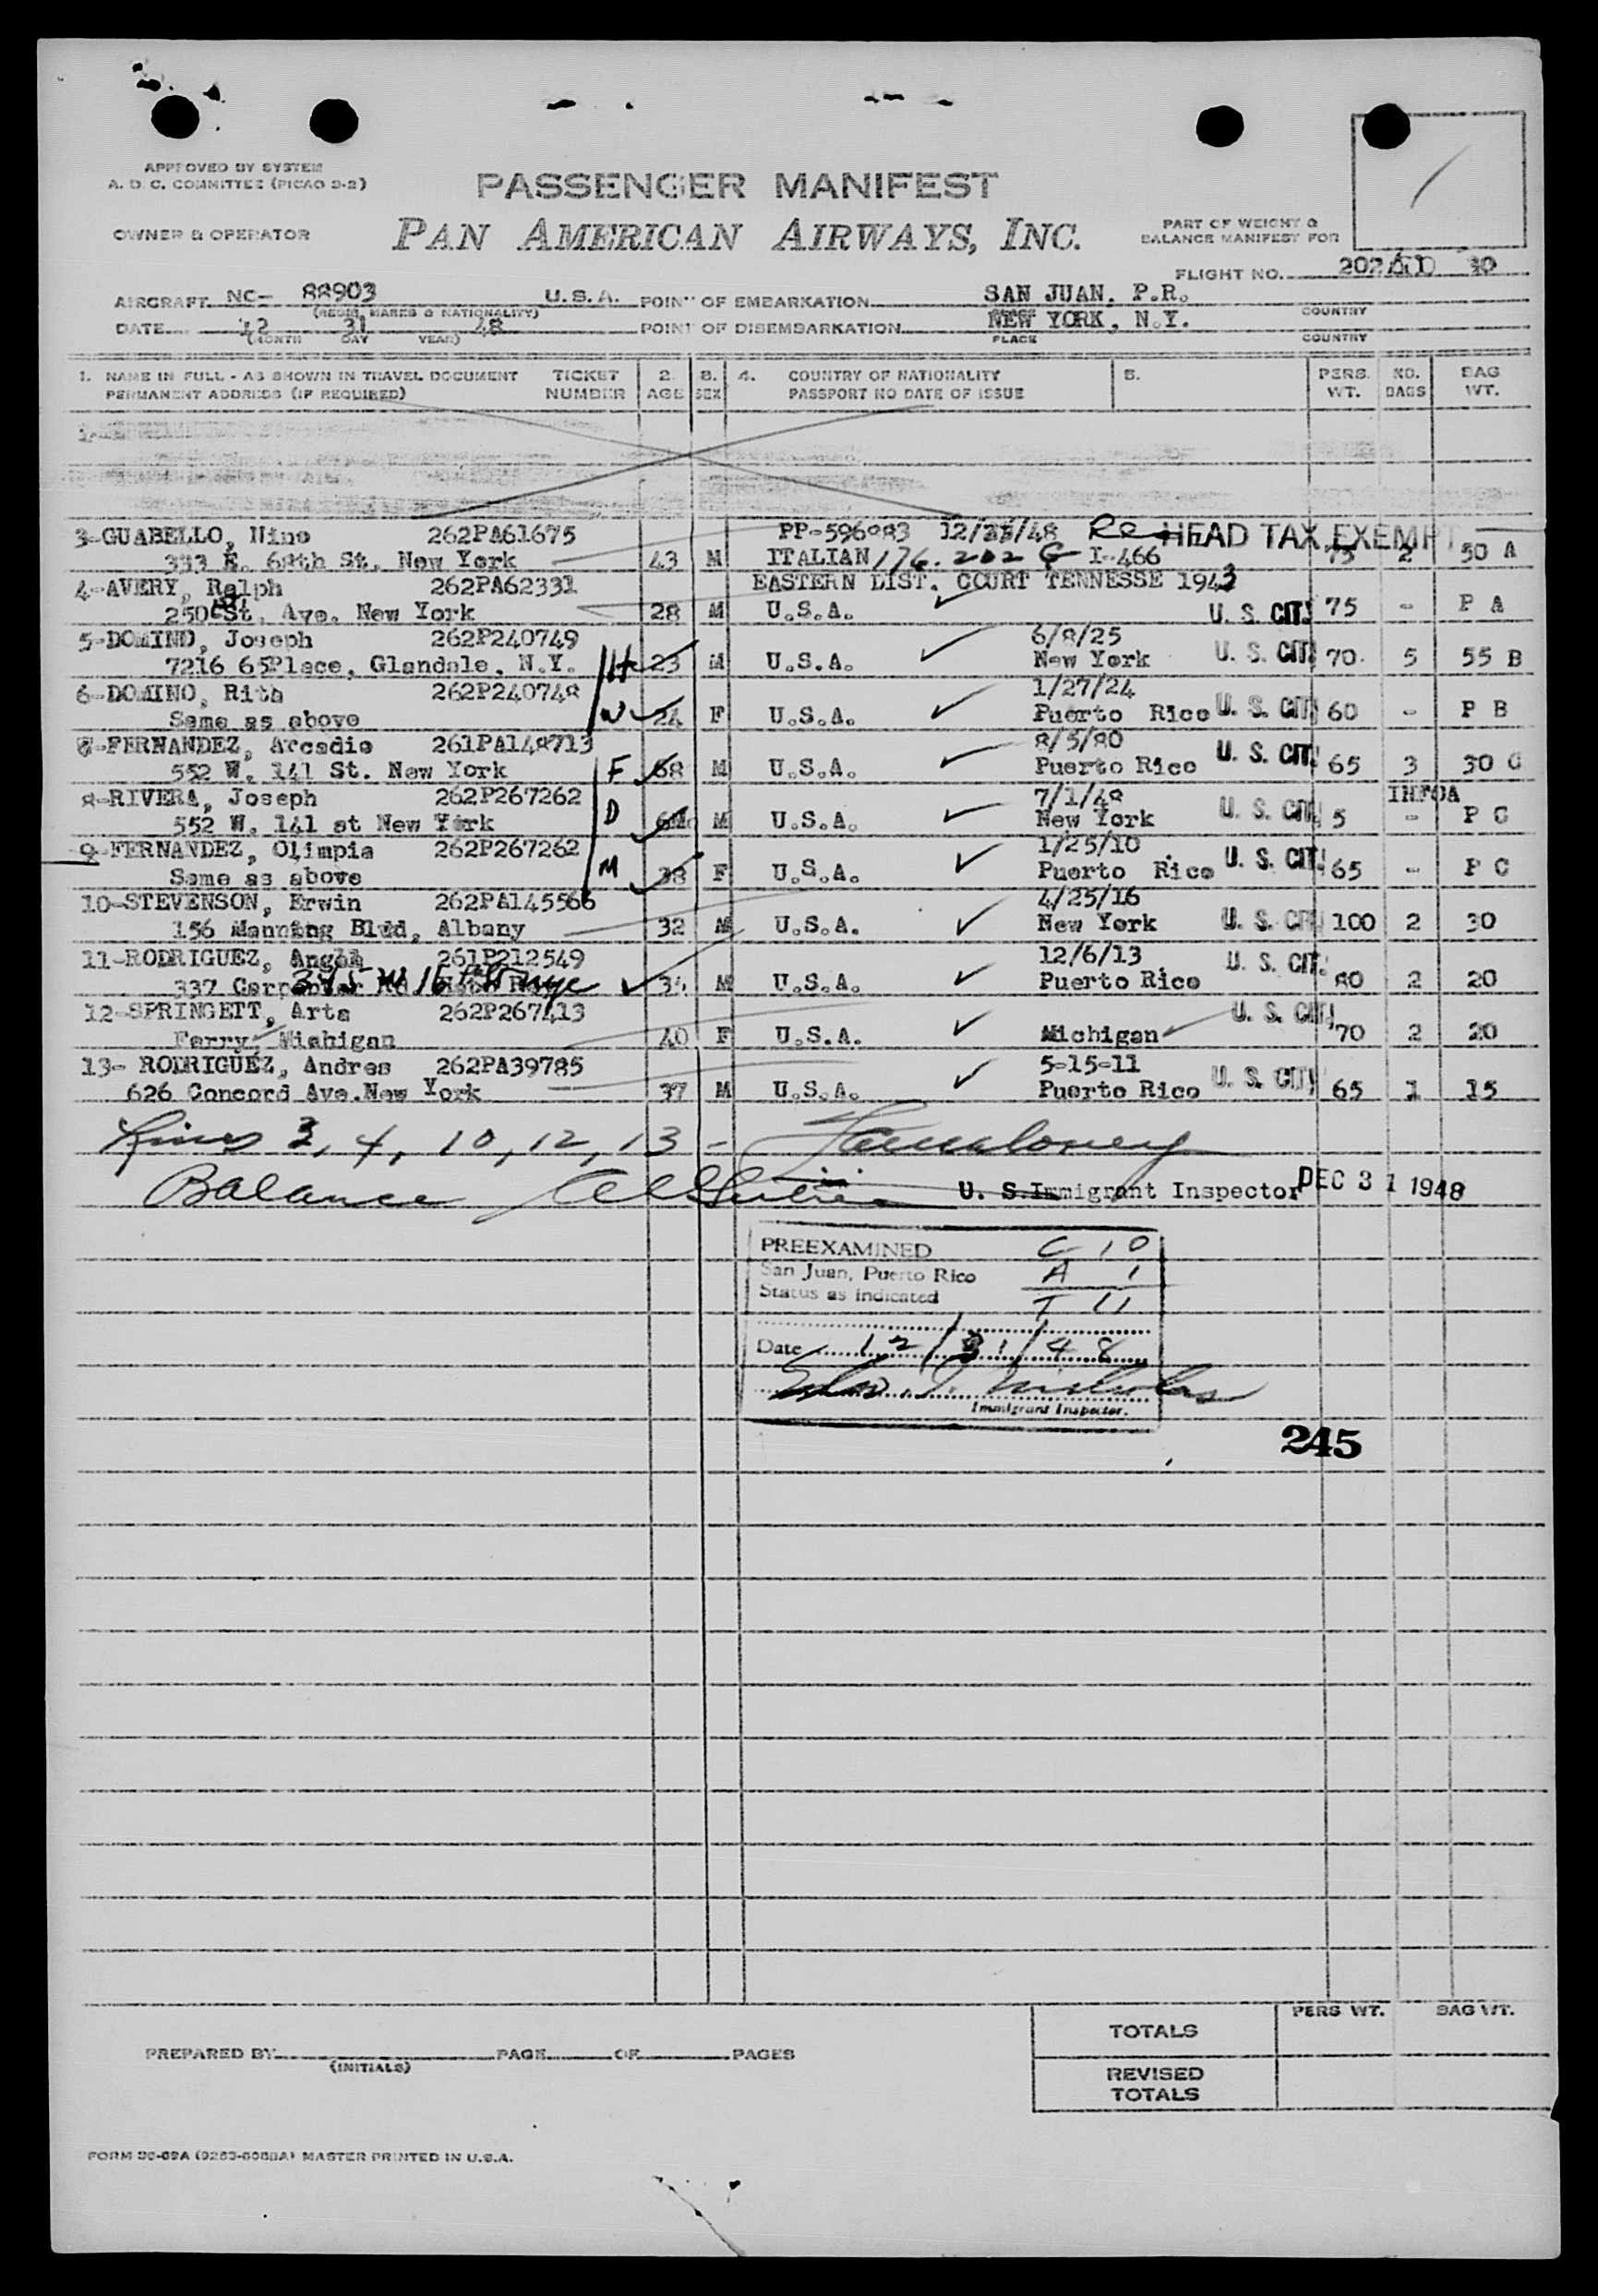 APPROVED BY SYSTEM
A. D. C. COMMITTEE (PICAO 2-2)
PASSENGER MANIFEST
OWNER & OPERATOR
PAN AMERICAN AIRWAYS, INC.
PART OF WEIGHT &
BALANCE MANIFEST FOR
FLIGHT NO. 202
AIRCRAFT NC- 88903 U.S.A. POINT OF EMBARKATION SAN JUAN, P.R.
(REGIS. MARKS & NATIONALITY) COUNTRY
DATE 12 31 48 POINT OF DISEMBARKATION NEW YORK, N.Y.
(MONTH DAY YEAR) PLACE COUNTRY
1. NAME IN FULL - AS SHOWN IN TRAVEL DOCUMENT TICKET 2. 3. 4. COUNTRY OF NATIONALITY 5. PERS. NO. BAG
PERMANENT ADDRESS (IF REQUIRED) NUMBER AGE SEX PASSPORT NO DATE OF ISSUE WT. BAGS WT.
3-GUABELLO, Nino 262PA61675 PP-596983 HEAD TAX EXEMPT
333 E. 68th St. New York 43 M ITALIAN 176.202 I-466 75 2 50 A
4-AVERY, Ralph 262PA62331 EASTERN DIST. COURT TENNESSE 1943
250 1st. Ave. New York 28 M U.S.A. U. S. CIT. 75 - P A
5-DOMINO, Joseph 262P240749 6/8/25
7216 65Place, Glendale, N.Y. H 23 M U.S.A. New York U. S. CIT. 70 5 55 B
6-DOMINO, Rith 262P240748 1/27/24
Same as above W 24 F U.S.A. Puerto Rico U. S. CIT. 60 - P B
-FERNANDEZ, Arcadio 261PA148713 8/5/80
552 W. 141 St. New York F 68 M U.S.A. Puerto Rico U. S. CIT. 65 3 30 C
8-RIVERA, Joseph 262P267262 7/1/48 INFOA
552 W. 141 st New York D 6M M U.S.A. New York U. S. CIT. 5 - P C
9-FERNANDEZ, Olimpia 262P267262 1/25/10
Same as above M 38 F U.S.A. Puerto Rico U. S. CIT. 65 - P C
10-STEVENSON, Erwin 262PA145566 4/25/16
156 Manning Blvd, Albany 32 M U.S.A. New York U. S. CIT. 100 2 30
11-RODRIGUEZ, Angel 261P212549 12/6/13 U. S. CIT.
337 Carpenter Rd 345 W 16th St nyc 34 M U.S.A. Puerto Rico 80 2 20
12-SPRINGETT, Arta 262P267413 U. S. CIT.
Ferry, Michigan 40 F U.S.A. Michigan 70 2 20
13- RODRIGUEZ, Andres 262PA39785 5-15-11
626 Concord Ave.New York 37 M U.S.A. Puerto Rico U. S. CIT. 65 1 15
Lines 3, 4, 10, 12, 13 -
Balance U. S. Immigrant Inspector DEC 31 1948
PREEXAMINED C 10
San Juan, Puerto Rico A 1
Status as indicated T 11
Date 12/31/48
Immigrant Inspector.
245
PERS WT. BAG WT.
TOTALS
PREPARED BY PAGE OF PAGES
(INITIALS)
REVISED
TOTALS
MASTER PRINTED IN U.S.A.